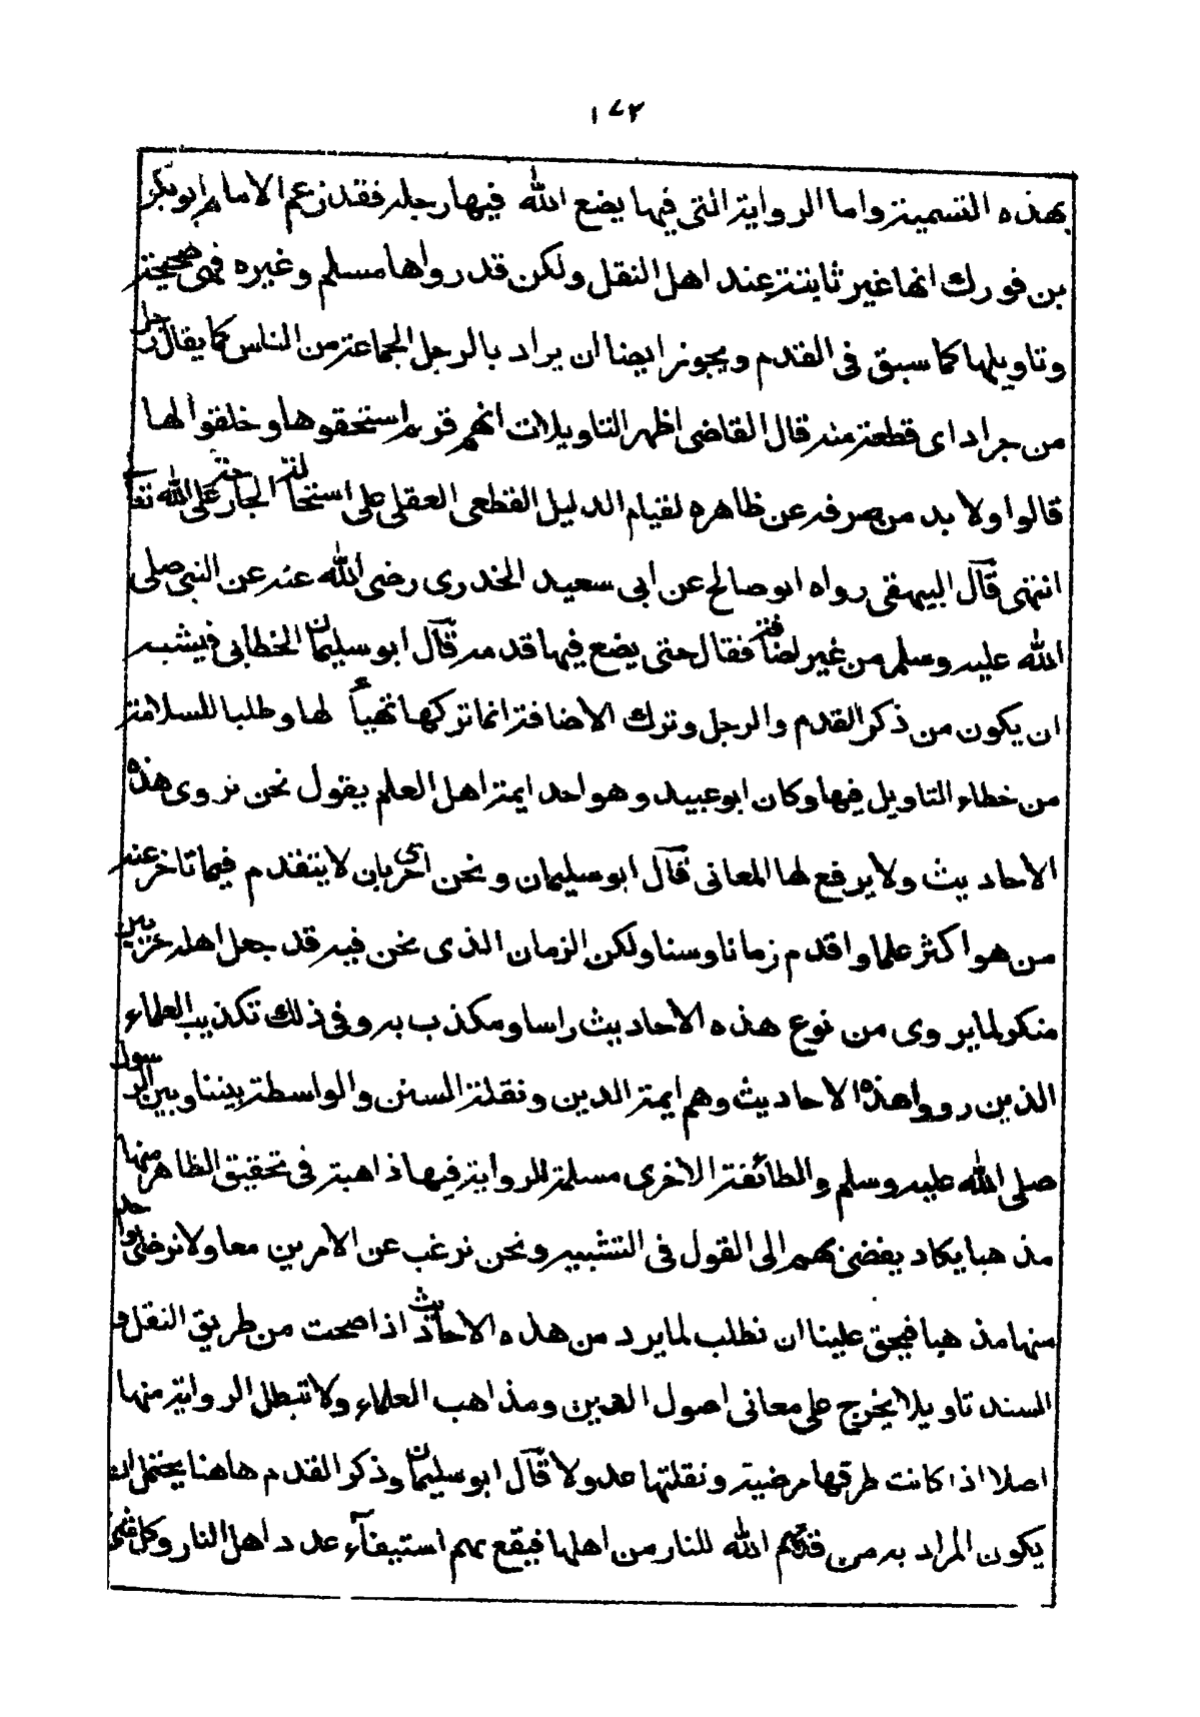 ١٧٢
بهذه التسمية واما الرواية التى فيها يضع الله فيها رجله فقد زعم الامام ابو بكر
بن فورك انها غير ثابتة عند اهل النقل ولكن قد رواها مسلم وغيره فهى صحيحة
وتاويلها كما سبق فى القدم ويجوز ايضا ان يراد بالرجل الجماعة من الناس كما يقال رجل
من جراد اى قطعة منه قال القاضى اظهر التاويلات انهم قوم استحقوها وخلقوا لها
قالوا ولا بد من صرفه عن ظاهره لقيام الدليل القطعى العقلى على استحالة الجارحة على الله تعالى
انتهى قال البيهقى رواه ابو صالح عن ابى سعيد الخدرى رضى الله عنه عن النبى صلى
الله عليه وسلم من غير اضافة فقال حتى يضع فيها قدمه قال ابو سليمان الخطابى فيشبه
ان يكون من ذكر القدم والرجل وترك الاضافة انما تركها تهيبأ لها وطلبا للسلامة
من خطاء التاويل فيها وكان ابو عبيد وهو احد ايمة اهل العلم يقول نحن نروى هذه
الاحاديث ولا يرفع لها المعانى قال ابو سليمان ونحن احرى بان لا يتقدم فيما تاخر عنه
من هو اكثر علما واقدم زمانا وسنا ولكن الزمان الذى نحن فيه قد جعل اهله حزبين
منكر لما يروى من نوع هذه الاحاديث راسا ومكذب به وفى ذلك تكذيب العلماء
الذين رووا هذه الاحاديث وهم ايمة الدين ونقلة السنن والواسطة بيننا وبين الرسول
صلى الله عليه وسلم والطائفة الاخرى مسلمة للرواية فيها ذاهبة فى تحقيق الظاهر منها
مذهبا يكاد يفضى بهم الى القول فى التشبيه ونحن نرغب عن الامرين معا ولا نرضى بواحد
منها مذهبا فيحق علينا ان نطلب لما يرد من هذه الاحاديث اذا صحت من طريق النقل و
السند تاويلا يخرج على معانى اصول الدين ومذاهب العلماء ولا تبطل الرواية منها
اصلا اذا كانت طرقها مرضية ونقلتها عدولا قال ابو سليمان وذكر القدم هاهنا يحتمل ان
يكون المراد به من قدمهم الله للنار من اهلها فيقع بهم استيفآء عدد اهل النار وكل شئ